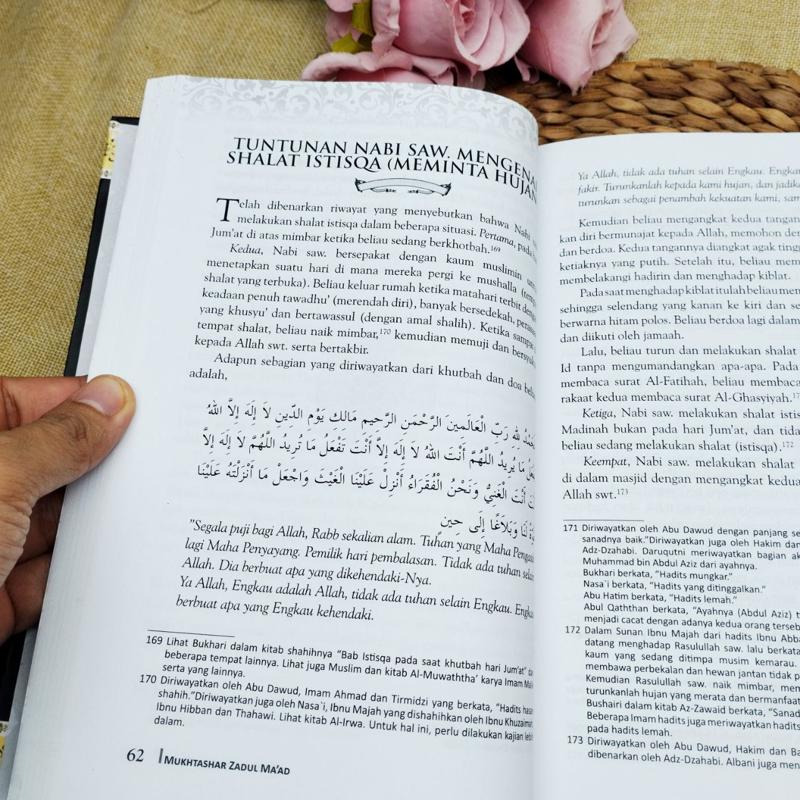 TUNTUNAN NABI SAW. MENGENAI
SHALAT ISTISQA (MEMINTA HUJAN
Telah dibenarkan riwayat yang menyebutkan bahwa Nabi
melakukan shalat istisqa dalam beberapa situasi. Pertama, pada
Jum'at di atas mimbar ketika beliau sedang berkhotbah.169
Kedua, Nabi saw. bersepakat dengan kaum muslimin
menetapkan suatu hari di mana mereka pergi ke mushalla
shalat yang terbuka). Beliau keluar rumah ketika matahari terbit
keadaan penuh tawadhu' (merendah diri), banyak bersedekah,
yang khusyu' dan bertawassul (dengan amal shalih). Ketika
tempat shalat, beliau naik mimbar,170 kemudian memuji dan
kepada Allah swt. serta bertakbir.
Adapun sebagian yang diriwayatkan dari khutbah dan doa
adalah,
لِلّٰهِ رَبِّ الْعَالَمِينَ الرَّحْمَنِ الرَّحِيمِ مَالِكِ يَوْمِ الدِّينِ لَا إِلَهَ إِلَّا اللهُ
مَا يُرِيدُ اللَّهُمَّ أَنْتَ اللهُ لَا إِلَهَ إِلَّا أَنْتَ تَفْعَلُ مَا تُرِيدُ اللَّهُمَّ لَا إِلَهَ إِلَّا
أَنْتَ الْغَنِيُّ وَنَحْنُ الْفُقَرَاءُ أَنْزِلْ عَلَيْنَا الْغَيْثَ وَاجْعَلْ مَا أَنْزَلْتَهُ عَلَيْنَا
لَنَا وَبَلَاغًا إِلَى حِينٍ
"Segala puji bagi Allah, Rabb sekalian alam. Tuhan yang Maha
lagi Maha Penyayang. Pemilik hari pembalasan. Tidak ada tuhan
Allah. Dia berbuat apa yang dikehendaki-Nya.
Ya Allah, Engkau adalah Allah, tidak ada tuhan selain Engkau.
berbuat apa yang Engkau kehendaki.
169 Lihat Bukhari dalam kitab shahihnya "Bab Istisqa pada saat khutbah hari Jum'at"
beberapa tempat lainnya. Lihat juga Muslim dan kitab Al-Muwaththa' karya Imam
serta yang lainnya.
170 Diriwayatkan oleh Abu Dawud, Imam Ahmad dan Tirmidzi yang berkata, "Hadits
shahih."Diriwayatkan juga oleh Nasa`i, Ibnu Majah yang dishahihkan oleh Ibnu
Ibnu Hibban dan Thahawi. Lihat kitab Al-Irwa. Untuk hal ini, perlu dilakukan kajian
dalam.
62 MUKHTASHAR ZADUL MA'AD
Ya Allah, tidak ada tuhan selain Engkau.
fakir. Turunkanlah kepada kami hujan, dan
turunkan sebagai penambah kekuatan kami,
Kemudian beliau mengangkat kedua
kan diri bermunajat kepada Allah, memohon
dan berdoa. Kedua tangannya diangkat agak
ketiaknya yang putih. Setelah itu, beliau
membelakangi hadirin dan menghadap kiblat.
Pada saat menghadap kiblat itulah beliau
sehingga selendang yang kanan ke kiri dan
berwarna hitam polos. Beliau berdoa lagi dalam
dan diikuti oleh jamaah.
Lalu, beliau turun dan melakukan shalat
Id tanpa mengumandangkan apa-apa. Pada
membaca surat Al-Fatihah, beliau
rakaat kedua membaca surat Al-Ghasyiyah.
Ketiga, Nabi saw. melakukan shalat
Madinah bukan pada hari Jum'at, dan
beliau sedang melakukan shalat (istisqa).172
Keempat, Nabi saw. melakukan shalat
di dalam masjid dengan mengangkat kedua
Allah swt.173
171 Diriwayatkan oleh Abu Dawud dengan panjang
sanadnya baik."Diriwayatkan juga oleh Hakim
Adz-Dzahabi. Daruqutni meriwayatkan bagian
Muhammad bin Abdul Aziz dari ayahnya.
Bukhari berkata, "Hadits mungkar."
Nasa`i berkata, "Hadits yang ditinggalkan."
Abu Hatim berkata, "Hadits lemah."
Abul Qaththan berkata, "Ayahnya (Abdul Aziz)
menjadi cacat dengan adanya kedua orang
172 Dalam Sunan Ibnu Majah dari hadits Ibnu
datang menghadap Rasulullah saw. lalu
kaum yang sedang ditimpa musim kemarau.
membawa perbekalan dan hewan jantan tidak
Kemudian Rasulullah saw. naik mimbar,
turunkanlah hujan yang merata dan
Bushairi dalam kitab Az-Zawaid berkata,
Beberapa Imam hadits juga meriwayatkan
pada hadits lemah.
173 Diriwayatkan oleh Abu Dawud, Hakim dan
dibenarkan oleh Adz-Dzahabi. Albani juga